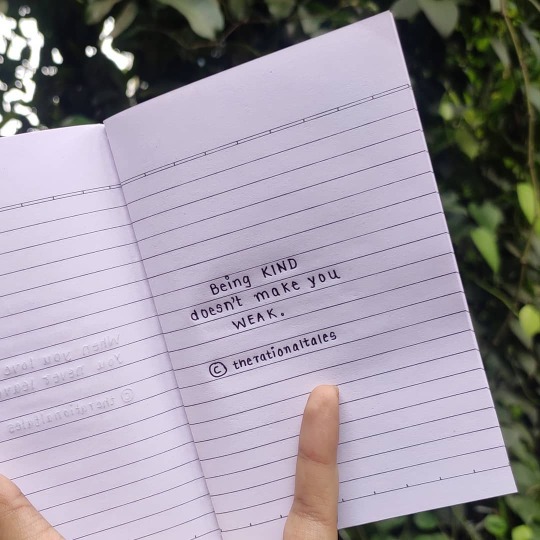 Being KIND
doesn't make you
WEAK.
© therationaltales